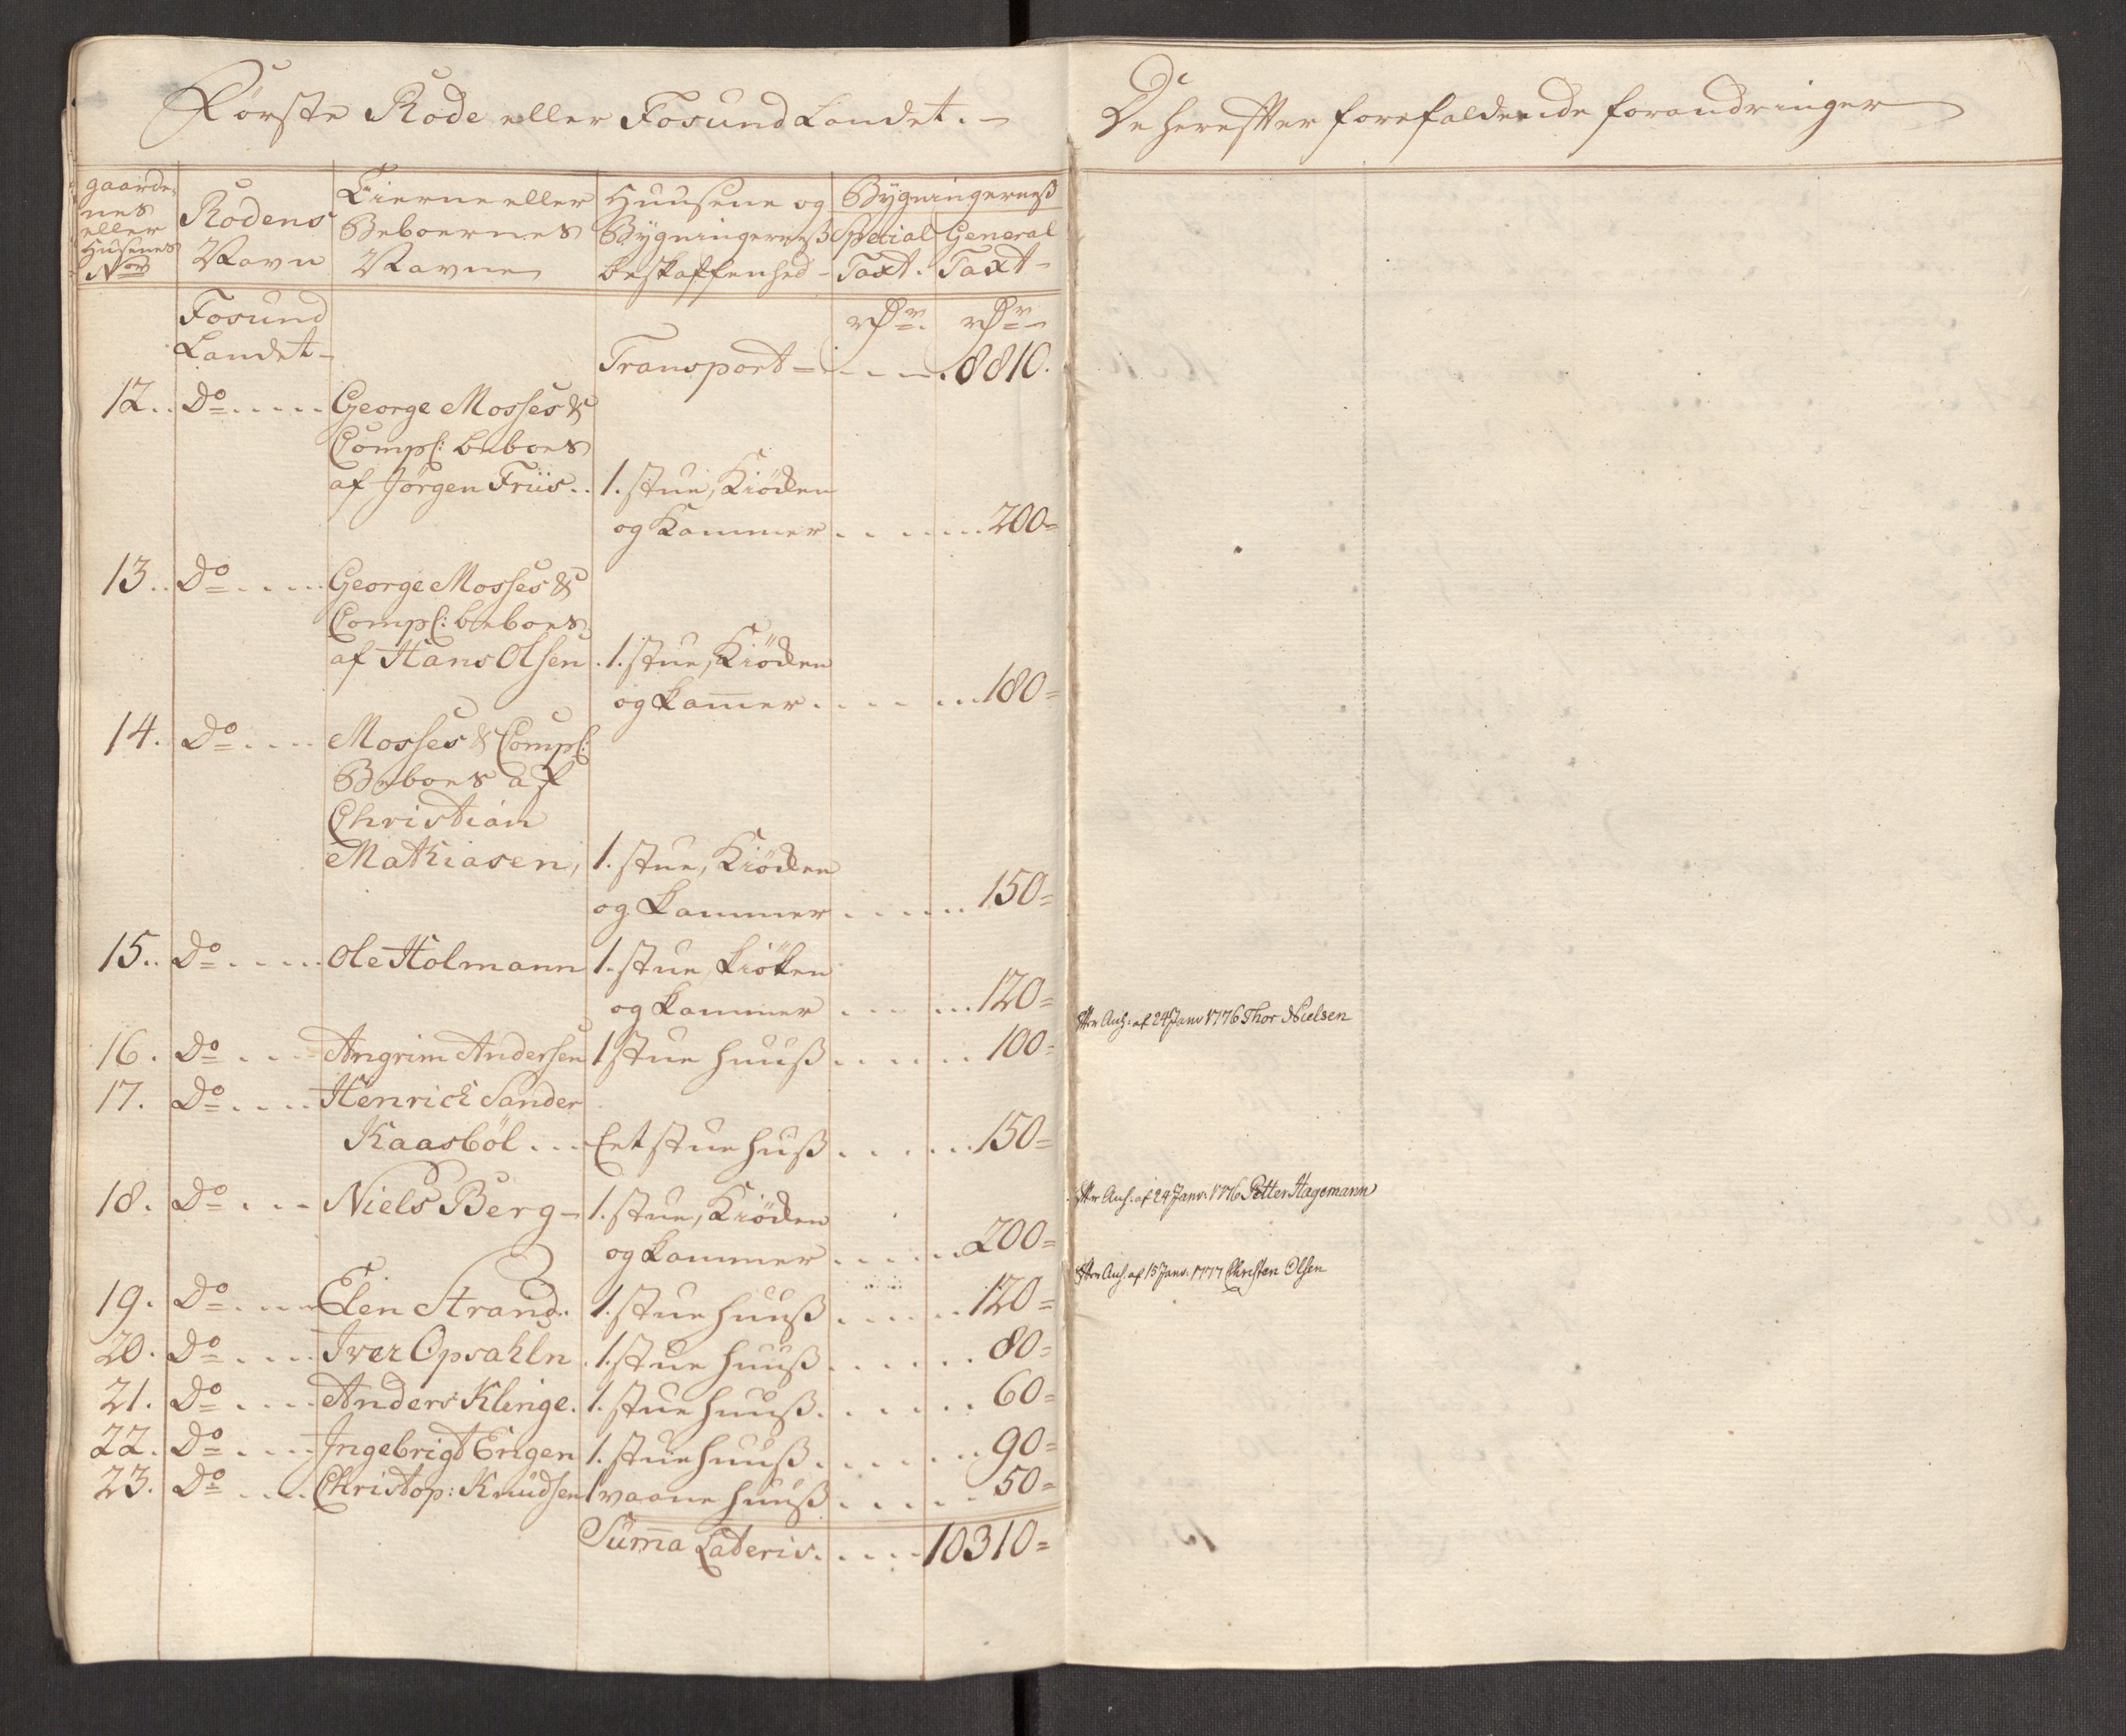 Förste Rode eller Fosund Landet. -
gaarde-
nes
eller
Husenes
Nor
Rodens
Navn
Eierne eller
Beboernes
Navne
Huusene og
Bygningerness
beskaffenhed -
Bygningerness
Spetial
Taxt.
General
Taxt -
Fosund
Landet -
rdr. rdr.
Transport - . . . . 8810.
12. . Do . . . . . George Mosses &
Comp: beboes
af Jörgen Friis . . 1. stue, Kiöcken
og Kammer . . . . . . . 200 =
13. . Do . . . . . George Mosses &
Comp: beboes
af Hans Olsen . 1. stue, Kiöcken
og kam̄er . . . . . . . 180 =
14. Do . . . . Mosses & Comp:
Beboes af
Christian
Mathiasen, 1. stue, Kiöcken
og kammer . . . . . . 150 =
15. . Do . . . . . Ole Holmann 1. stue, kiöken
og kammer . . . . . . 120 =
16. Do . . . . Angrim Andersen 1 stue huuß . . . . . . 100 =
17. Do . . . . Henrich Sander
Kaasböl . . . Eet stue huß . . . . . . 150 =
18. Do . . . Niels Berg - 1. stue, Kiöcken
og kammer . . . . . . 200 =
19. Do . . . . Elen Strand. 1. stue huuß . . . . . . 120 =
20. Do . . . . Iver Opsahln . 1. stue huuß . . . . . . 80 =
21. Do . . . . Anders Klinge. 1. stue huuß . . . . . . 60 =
22. Do . . . . Ingebrigt Engen 1. stue huuß . . . . . . 90 =
23. Do . . . . Christop: Knudsen 1 vaane huuß . . . . . . 50 =
Sum̄a Lateris . . . . . 10310 =
De herefter forefaldende forandringer
efter Anh: af 24 Janv 1776 Thor Nielsen
efter Anh: af 24 Janv: 1776 Petter Hagemann
efter Anh: af 15 Janv: 1777 Christen Olsen